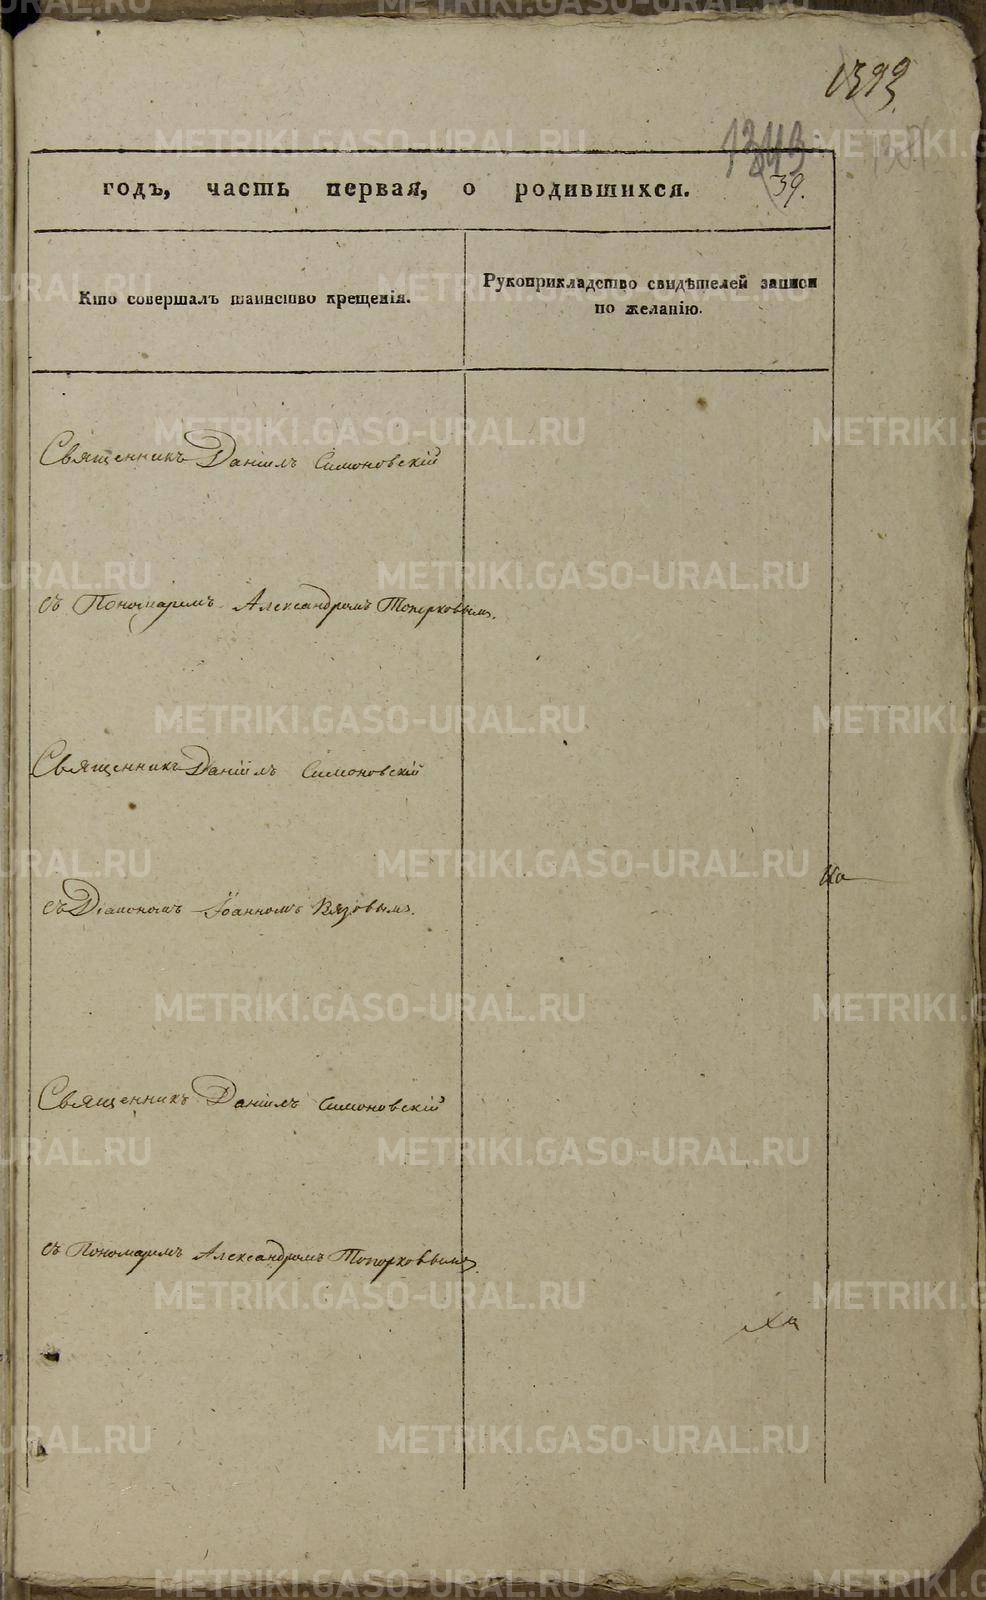 1399.
1343
39.
годъ, часть первая, о родившихся.
Кто совершалъ таинство крещенія.
Рукоприкладство свидѣтелей записи
по желанію.
Священникъ Даніилъ Симоновскій
съ Пономаремъ Александромъ Топорковымъ.
Священникъ Даніилъ Симоновскій
съ Діакономъ Іоанномъ Вязовымъ.
Священникъ Даніилъ Симоновскій
съ Пономаремъ Александромъ Топорковымъ.
METRIKI.GASO-URAL.RU